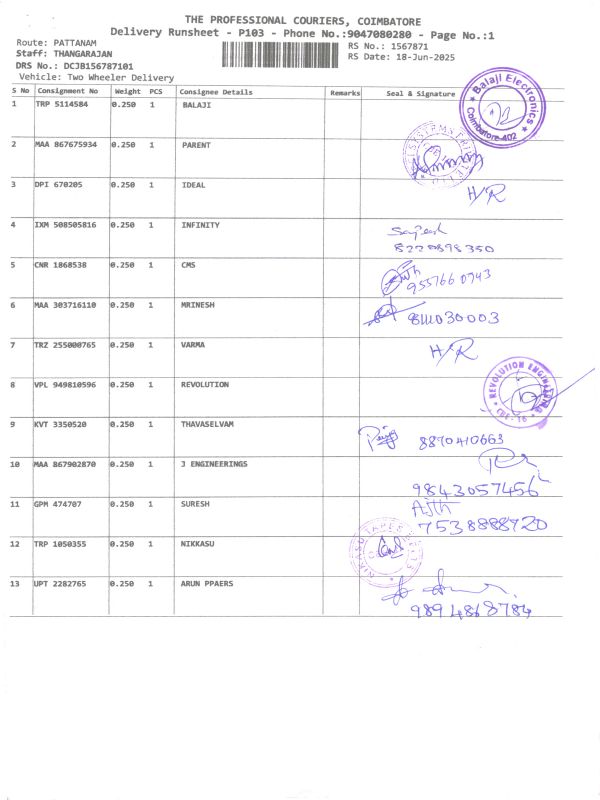 THE PROFESSIONAL COURIERS, COIMBATORE
Delivery Runsheet - P103 - Phone No.:9047080280 - Page No.:1
Route: PATTANAM
RS No.: 1567871
Staff: THANGARAJAN
RS Date: 18-Jun-2025
DRS No.: DCJB156787101
Vehicle: Two Wheeler Delivery
S No Consignment No Weight PCS Consignee Details Remarks Seal & Signature
1 TRP 5114584 0.250 1 BALAJI
Balaji Electronics
Coimbatore 402
2 MAA 867675934 0.250 1 PARENT
3 DPI 670205 0.250 1 IDEAL H/R
4 IXM 508505816 0.250 1 INFINITY
5 CNR 1868538 0.250 1 CMS
9557660943
6 MAA 303716110 0.250 1 MRINESH
7 TRZ 255000765 0.250 1 VARMA H/R
8 VPL 949810596 0.250 1 REVOLUTION
9 KVT 3350520 0.250 1 THAVASELVAM
8890410663
10 MAA 867902870 0.250 1 J ENGINEERINGS
9843057456
11 GPM 474707 0.250 1 SURESH Ajth
7538888720
12 TRP 1050355 0.250 1 NIKKASU
13 UPT 2282765 0.250 1 ARUN PPAERS
9894868784